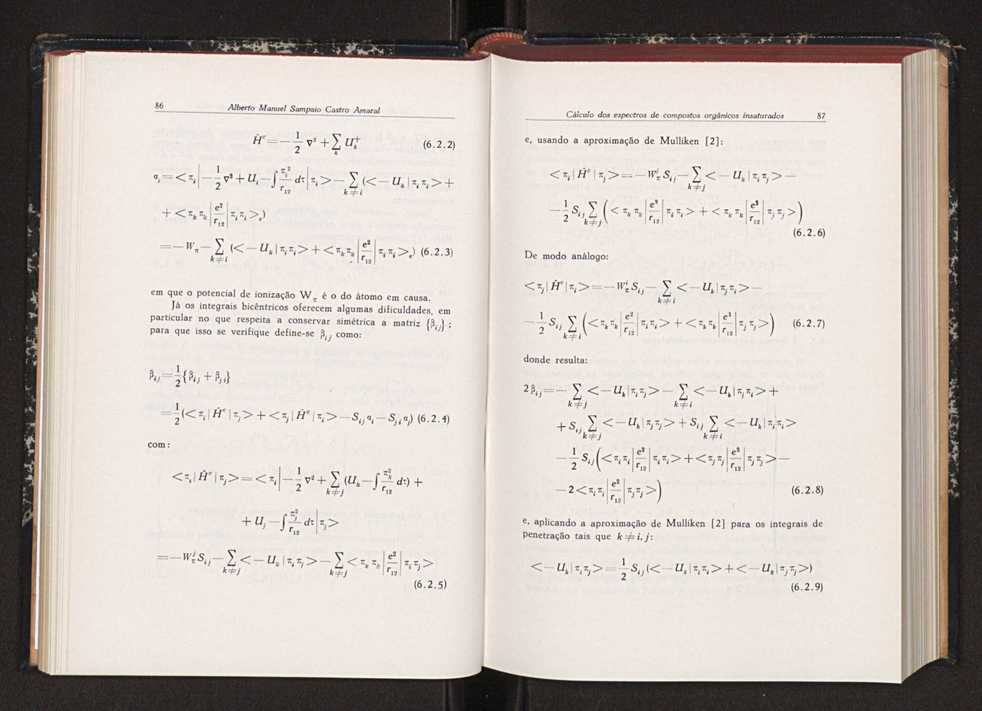 86 Alberto Manuel Sampaio Castro Amaral
Ĥᶜ = − 1/2 ∇² + Σₖ Uₖ⁺ (6.2.2)
αᵢ = < πᵢ | − 1/2 ∇² + Uᵢ − ∫ πᵢ²/r₁₂ dτ | πᵢ > − Σ_{k≠i} (< − Uₖ | πᵢ πᵢ > +
+ < πₖ πₖ | e²/r₁₂ | πᵢ πᵢ >ₑ)
= − W_π − Σ_{k≠i} (< − Uₖ | πᵢ πᵢ > + < πₖ πₖ | e²/r₁₂ | πᵢ πᵢ >ₑ) (6.2.3)
em que o potencial de ionização W_π é o do átomo em causa.
Já os integrais bicêntricos oferecem algumas dificuldades, em
particular no que respeita a conservar simétrica a matriz {β̂ᵢⱼ} ;
para que isso se verifique define-se β̂ᵢⱼ como:
β̂ᵢⱼ = 1/2 {β̂ᵢⱼ + β̂ⱼᵢ}
= 1/2 (< πᵢ | Ĥᶜ | πⱼ > + < πⱼ | Ĥᶜ | πᵢ > − Sᵢⱼ αᵢ − Sⱼᵢ αⱼ) (6.2.4)
com:
< πᵢ | Ĥᶜ | πⱼ > = < πᵢ | − 1/2 ∇² + Σ_{k≠j} (Uₖ − ∫ πₖ²/r₁₂ dτ) +
+ Uⱼ − ∫ πⱼ²/r₁₂ dτ | πⱼ >
= − W_π^j Sᵢⱼ − Σ_{k≠j} < − Uₖ | πᵢ πⱼ > − Σ_{k≠j} < πₖ πₖ | e²/r₁₂ | πᵢ πⱼ >
(6.2.5)
Cálculo dos espectros de compostos orgânicos insaturados 87
e, usando a aproximação de Mulliken [2]:
< πᵢ | Ĥᶜ | πⱼ > = − W_π^j Sᵢⱼ − Σ_{k≠j} < − Uₖ | πᵢ πⱼ > −
− 1/2 Sᵢⱼ Σ_{k≠j} (< πₖ πₖ | e²/r₁₂ | πᵢ πᵢ > + < πₖ πₖ | e²/r₁₂ | πⱼ πⱼ >)
(6.2.6)
De modo análogo:
< πⱼ | Ĥᶜ | πᵢ > = − W_π^i Sᵢⱼ − Σ_{k≠i} < − Uₖ | πⱼ πᵢ > −
− 1/2 Sᵢⱼ Σ_{k≠i} (< πₖ πₖ | e²/r₁₂ | πᵢ πᵢ > + < πₖ πₖ | e²/r₁₂ | πⱼ πⱼ >) (6.2.7)
donde resulta:
2 β̂ᵢⱼ = − Σ_{k≠j} < − Uₖ | πᵢ πⱼ > − Σ_{k≠i} < − Uₖ | πⱼ πᵢ > +
+ Sᵢⱼ Σ_{k≠j} < − Uₖ | πⱼ πⱼ > + Sᵢⱼ Σ_{k≠i} < − Uₖ | πᵢ πᵢ >
− 1/2 Sᵢⱼ (< πᵢ πᵢ | e²/r₁₂ | πᵢ πᵢ > + < πⱼ πⱼ | e²/r₁₂ | πⱼ πⱼ > −
− 2 < πᵢ πᵢ | e²/r₁₂ | πⱼ πⱼ >) (6.2.8)
e, aplicando a aproximação de Mulliken [2] para os integrais de
penetração tais que k ≠ i, j:
< − Uₖ | πᵢ πⱼ > = 1/2 Sᵢⱼ (< − Uₖ | πᵢ πᵢ > + < − Uₖ | πⱼ πⱼ >)
(6.2.9)